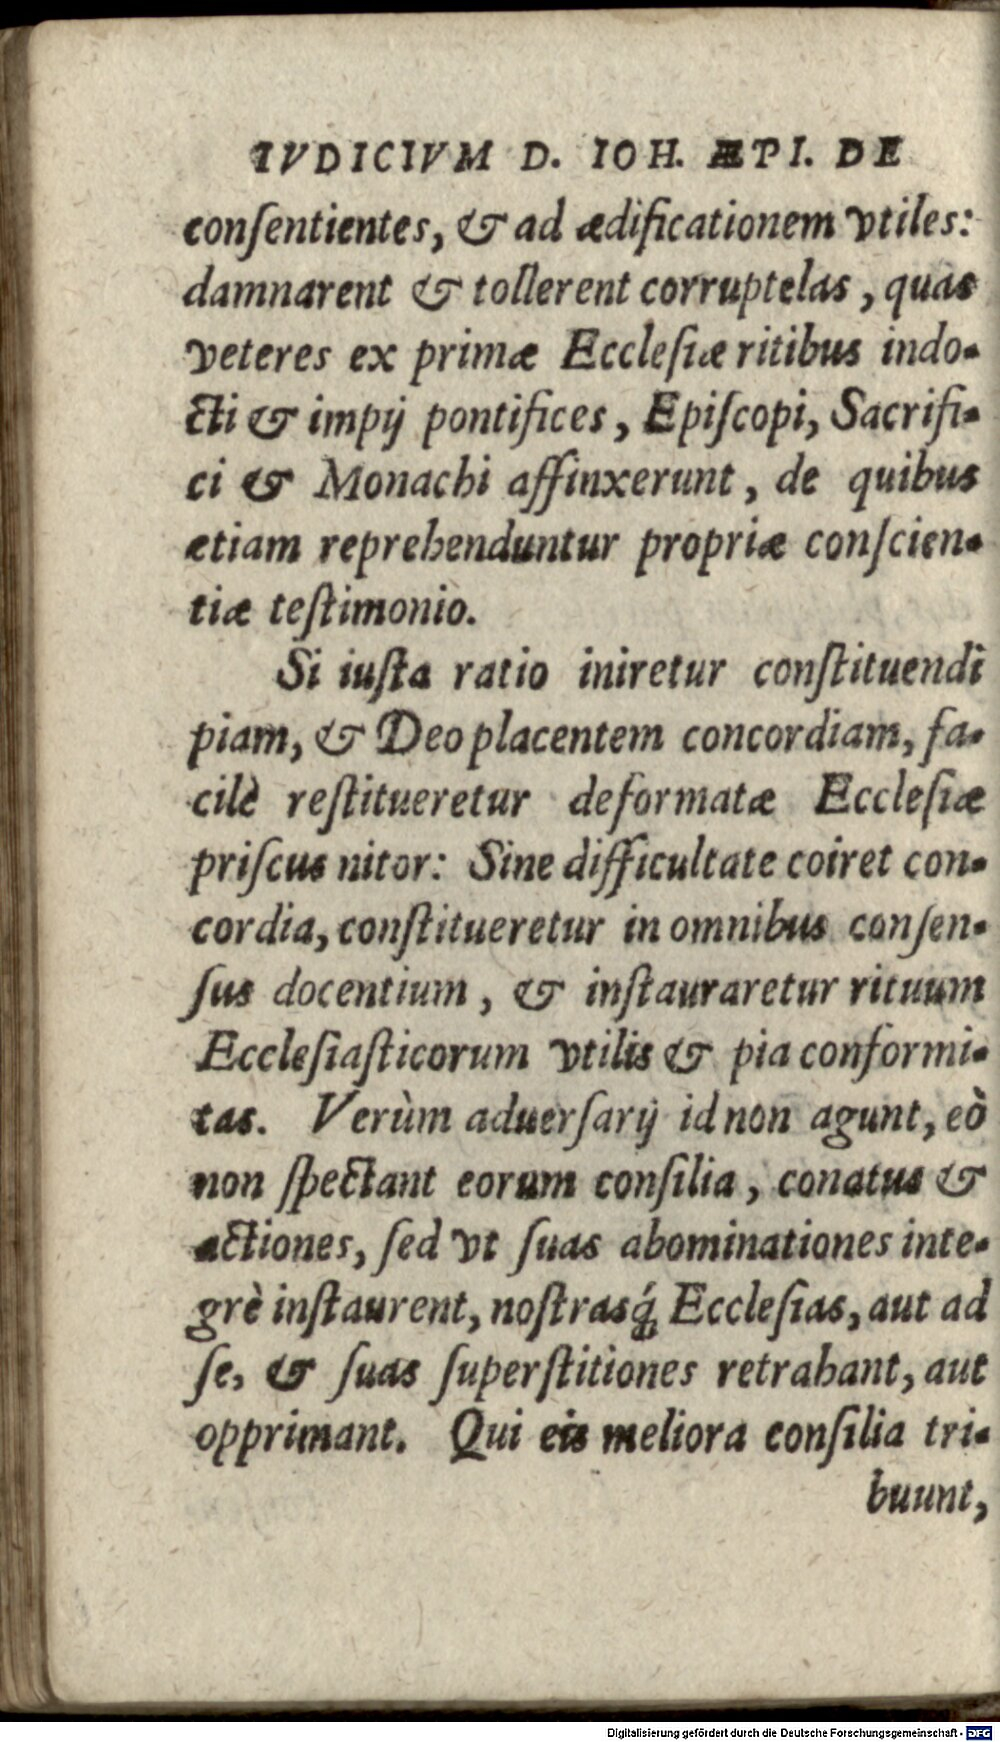 IVDICIVM D. IOH. ÆPI. DE
conſentientes, & ad ædificationem vtiles:
damnarent & tollerent corruptelas, quas
veteres ex primæ Eccleſiæ ritibus indo-
cti & impij pontifices, Epiſcopi, Sacrifi-
ci & Monachi affinxerunt, de quibus
etiam reprehenduntur propriæ conſcien-
tiæ teſtimonio.
Si iuſta ratio iniretur conſtituendi
piam, & Deo placentem concordiam, fa-
cilè reſtitueretur deformatæ Eccleſiæ
priſcus nitor: Sine difficultate coiret con-
cordia, conſtitueretur in omnibus conſen-
ſus docentium, & inſtauraretur rituum
Eccleſiaſticorum vtilis & pia conformi-
tas. Verùm aduerſarij id non agunt, eò
non ſpectant eorum conſilia, conatus &
actiones, ſed vt ſuas abominationes inte-
grè inſtaurent, noſtrasq́; Eccleſias, aut ad
ſe, & ſuas ſuperſtitiones retrahant, aut
opprimant. Qui eis meliora conſilia tri-
buunt,
Digitalisierung gefördert durch die Deutsche Forschungsgemeinschaft - DFG